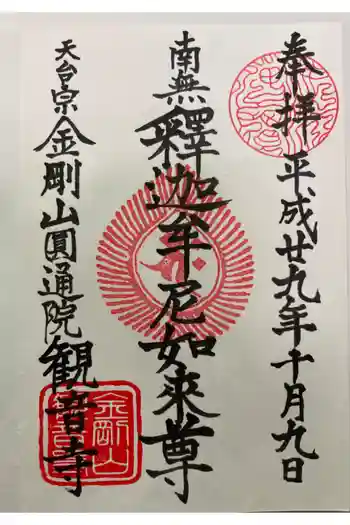 奉拝 平成廿九年十月九日
南無釋迦牟尼如来尊
天台宗金剛山圓通院観音寺
金剛山